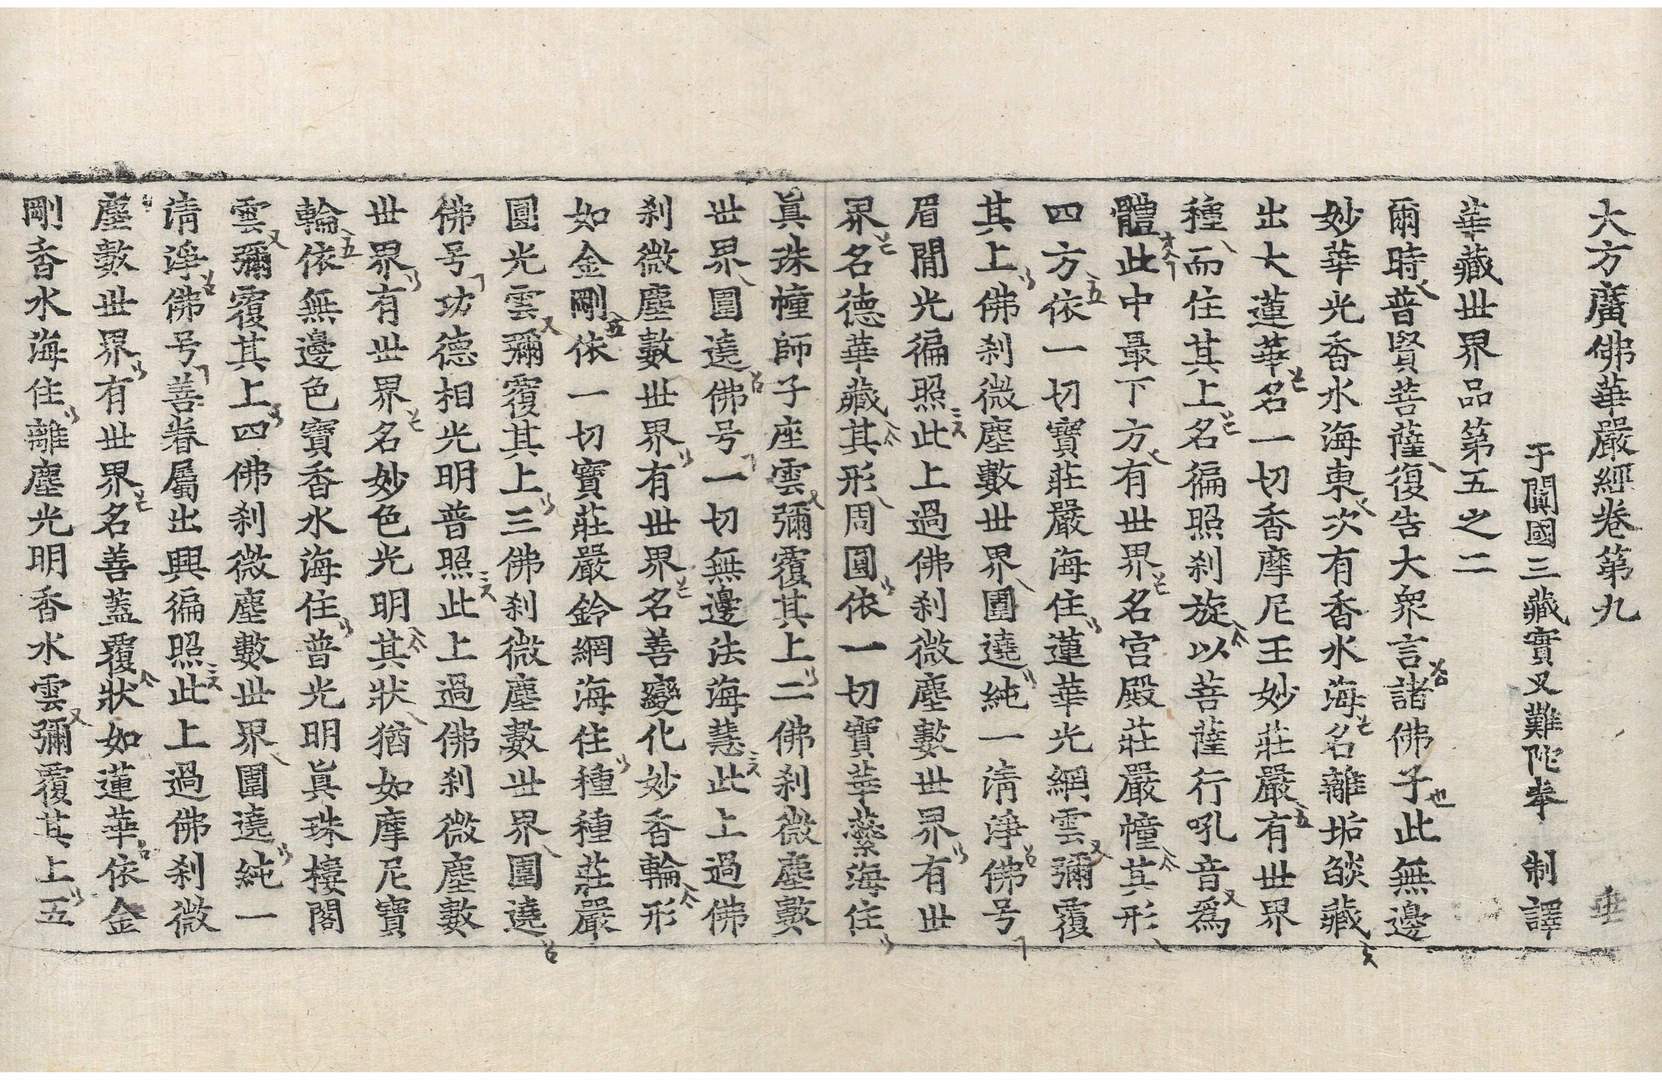 大方廣佛華嚴經卷第九 垂
于闐國三藏實叉難陀奉 制譯
華藏世界品第五之二
爾時普賢菩薩復告大衆言諸佛子此無邊
妙華光香水海東次有香水海名離垢燄藏
出大蓮華名一切香摩尼王妙莊嚴有世界
種而住其上名徧照刹旋以菩薩行吼音爲
體此中最下方有世界名宫殿莊嚴幢其形
四方依一切寶莊嚴海住蓮華光網雲彌覆
其上佛刹微塵數世界圍遶純一清淨佛号
眉閒光徧照此上過佛刹微塵數世界有世
界名德華藏其形周圓依一切寶華蘂海住
眞珠幢師子座雲彌覆其上二佛刹微塵數
世界圍遶佛号一切無邊法海慧此上過佛
刹微塵數世界有世界名善變化妙香輪形
如金剛依一切寶莊嚴鈴網海住種種莊嚴
圓光雲彌覆其上三佛刹微塵數世界圍遶
佛号功德相光明普照此上過佛刹微塵數
世界有世界名妙色光明其狀猶如摩尼寶
輪依無邊色寶香水海住普光明眞珠樓閣
雲彌覆其上四佛刹微塵數世界圍遶純一
清淨佛号善眷屬出興徧照此上過佛刹微
塵數世界有世界名善蓋覆狀如蓮華依金
剛香水海住離塵光明香水雲彌覆其上五